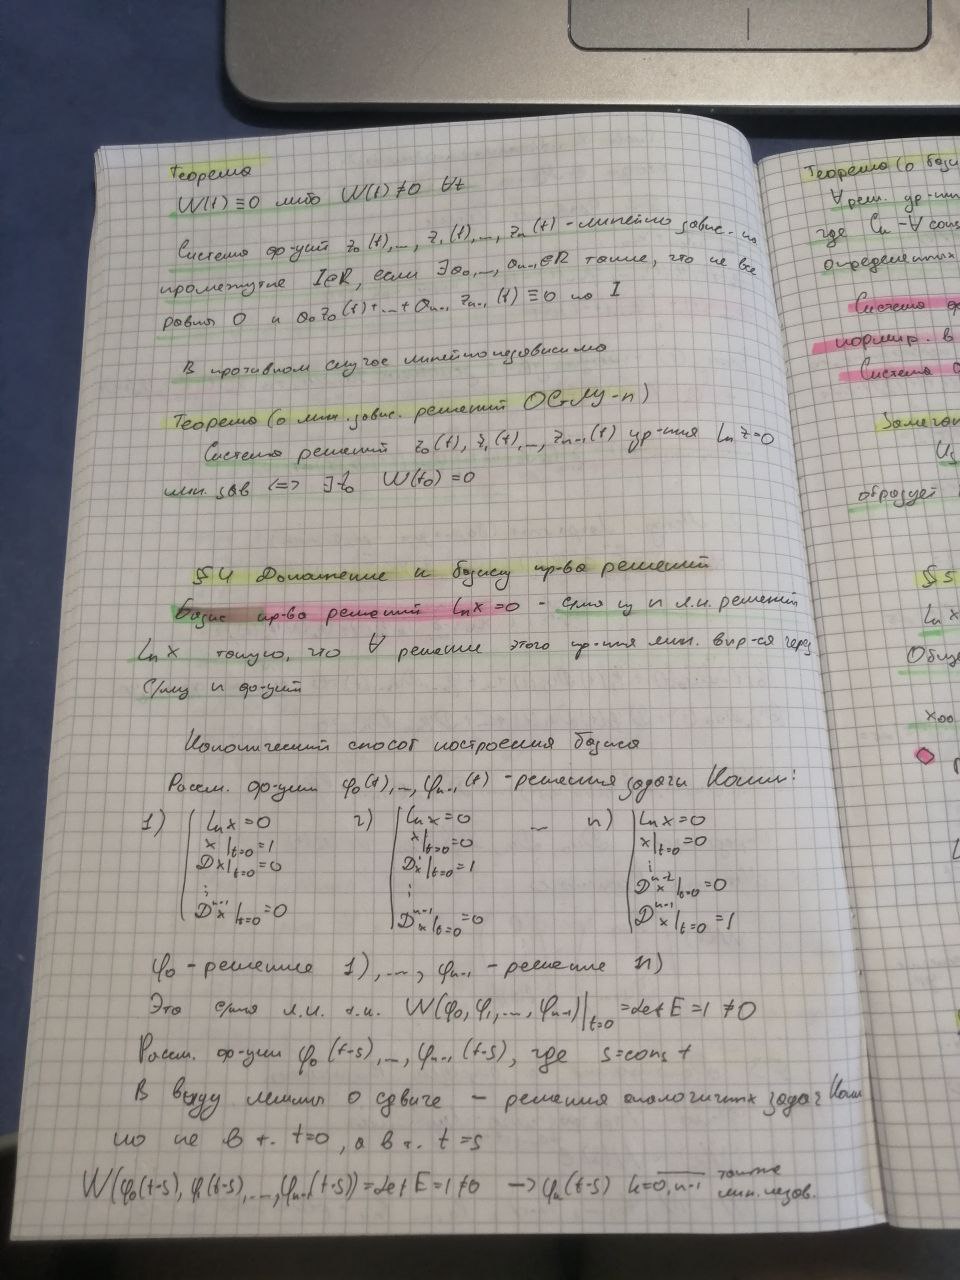 Теорема
W(t) ≡ 0 либо W(t) ≠ 0 ∀t
Система ф-ций z₀(t),..., z₁(t),..., zₙ(t) - линейно завис. на
промежутке I∈R, если ∃a₀,..., aₙ₋₁∈R такие, что не все
равны 0 и a₀z₀(t)+...+aₙ₋₁ zₙ₋₁(t) ≡ 0 на I
В противном случае линейно независима
Теорема (о лин. завис. решений
Система решений z₀(t), z₁(t),..., zₙ₋₁(t) ур-ния Lₙ z=0
лин. зав <=> ∃t₀ W(t₀) = 0
§4 Дополнение к базису пр-ва решений
Базис пр-ва решений Lₙx=0 - с/ма из n л.н. решений
Lₙ x такую, что ∀ решение этого ур-ния лин. выр-ся через
с/му n ф-ций
Канонический способ построения базиса
Рассм. ф-ции φ₀(t),..., φₙ₋₁(t) - решения задачи Коши:
1) Lₙx=0 2) Lₙx=0 ... n) Lₙx=0
x|t=0=1 x|t=0=0 x|t=0=0
Dx|t=0=0 Dx|t=0=1 ⋮
⋮ ⋮ Dⁿ⁻²x|t=0=0
Dⁿ⁻¹x|t=0=0 Dⁿ⁻¹x|t=0=0 Dⁿ⁻¹x|t=0=1
φ₀ - решение 1),..., φₙ₋₁ - решение n)
Это с/ма л.н. т.к. W(φ₀, φ₁,..., φₙ₋₁)|t=0 = det E = 1 ≠ 0
Рассм. ф-ции φ₀(t-s),..., φₙ₋₁(t-s), где s=const
В виду леммы о сдвиге - решения аналогичных задач Коши
но не в т. t=0, а в т. t=s
W(φ₀(t-s), φ₁(t-s),..., φₙ₋₁(t-s)) = det E = 1 ≠ 0 -> φₖ(t-s) k=0,n-1 также
лин. незав.
Теорема (о бази
∀ реш. ур-ни
где Cₙ - ∀ cons
определенных
Система ф
нормир. в
Система
Замечан
образует
§5
Lₙ x
Обще
x₀₀